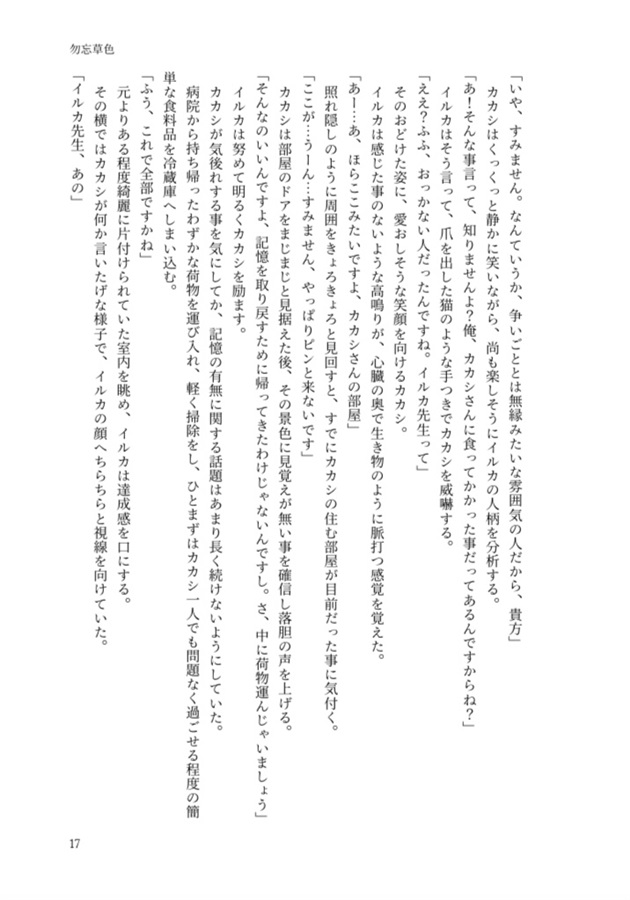 勿忘草色
「いや、すみません。なんていうか、争いごととは無縁みたいな雰囲気の人だから、貴方」
カカシはくっくっと静かに笑いながら、尚も楽しそうにイルカの人柄を分析する。
「あ！そんな事言って、知りませんよ？俺、カカシさんに食ってかかった事だってあるんですからね？」
イルカはそう言って、爪を出した猫のような手つきでカカシを威嚇する。
「ええ？ふふ、おっかない人だったんですね。イルカ先生って」
そのおどけた姿に、愛おしそうな笑顔を向けるカカシ。
イルカは感じた事のないような高鳴りが、心臓の奥で生き物のように脈打つ感覚を覚えた。
「あー…あ、ほらここみたいですよ、カカシさんの部屋」
照れ隠しのように周囲をきょろきょろと見回すと、すでにカカシの住む部屋が目前だった事に気付く。
「ここが…うーん…すみません、やっぱりピンと来ないです」
カカシは部屋のドアをまじまじと見据えた後、その景色に見覚えが無い事を確信し落胆の声を上げる。
「そんなのいいんですよ、記憶を取り戻すために帰ってきたわけじゃないんですし。さ、中に荷物運んじゃいましょう」
イルカは努めて明るくカカシを励ます。
カカシが気後れする事を気にしてか、記憶の有無に関する話題はあまり長く続けないようにしていた。
病院から持ち帰ったわずかな荷物を運び入れ、軽く掃除をし、ひとまずはカカシ一人でも問題なく過ごせる程度の簡
単な食料品を冷蔵庫へしまい込む。
「ふう、これで全部ですかね」
元よりある程度綺麗に片付けられていた室内を眺め、イルカは達成感を口にする。
その横ではカカシが何か言いたげな様子で、イルカの顔へちらちらと視線を向けていた。
「イルカ先生、あの」
17